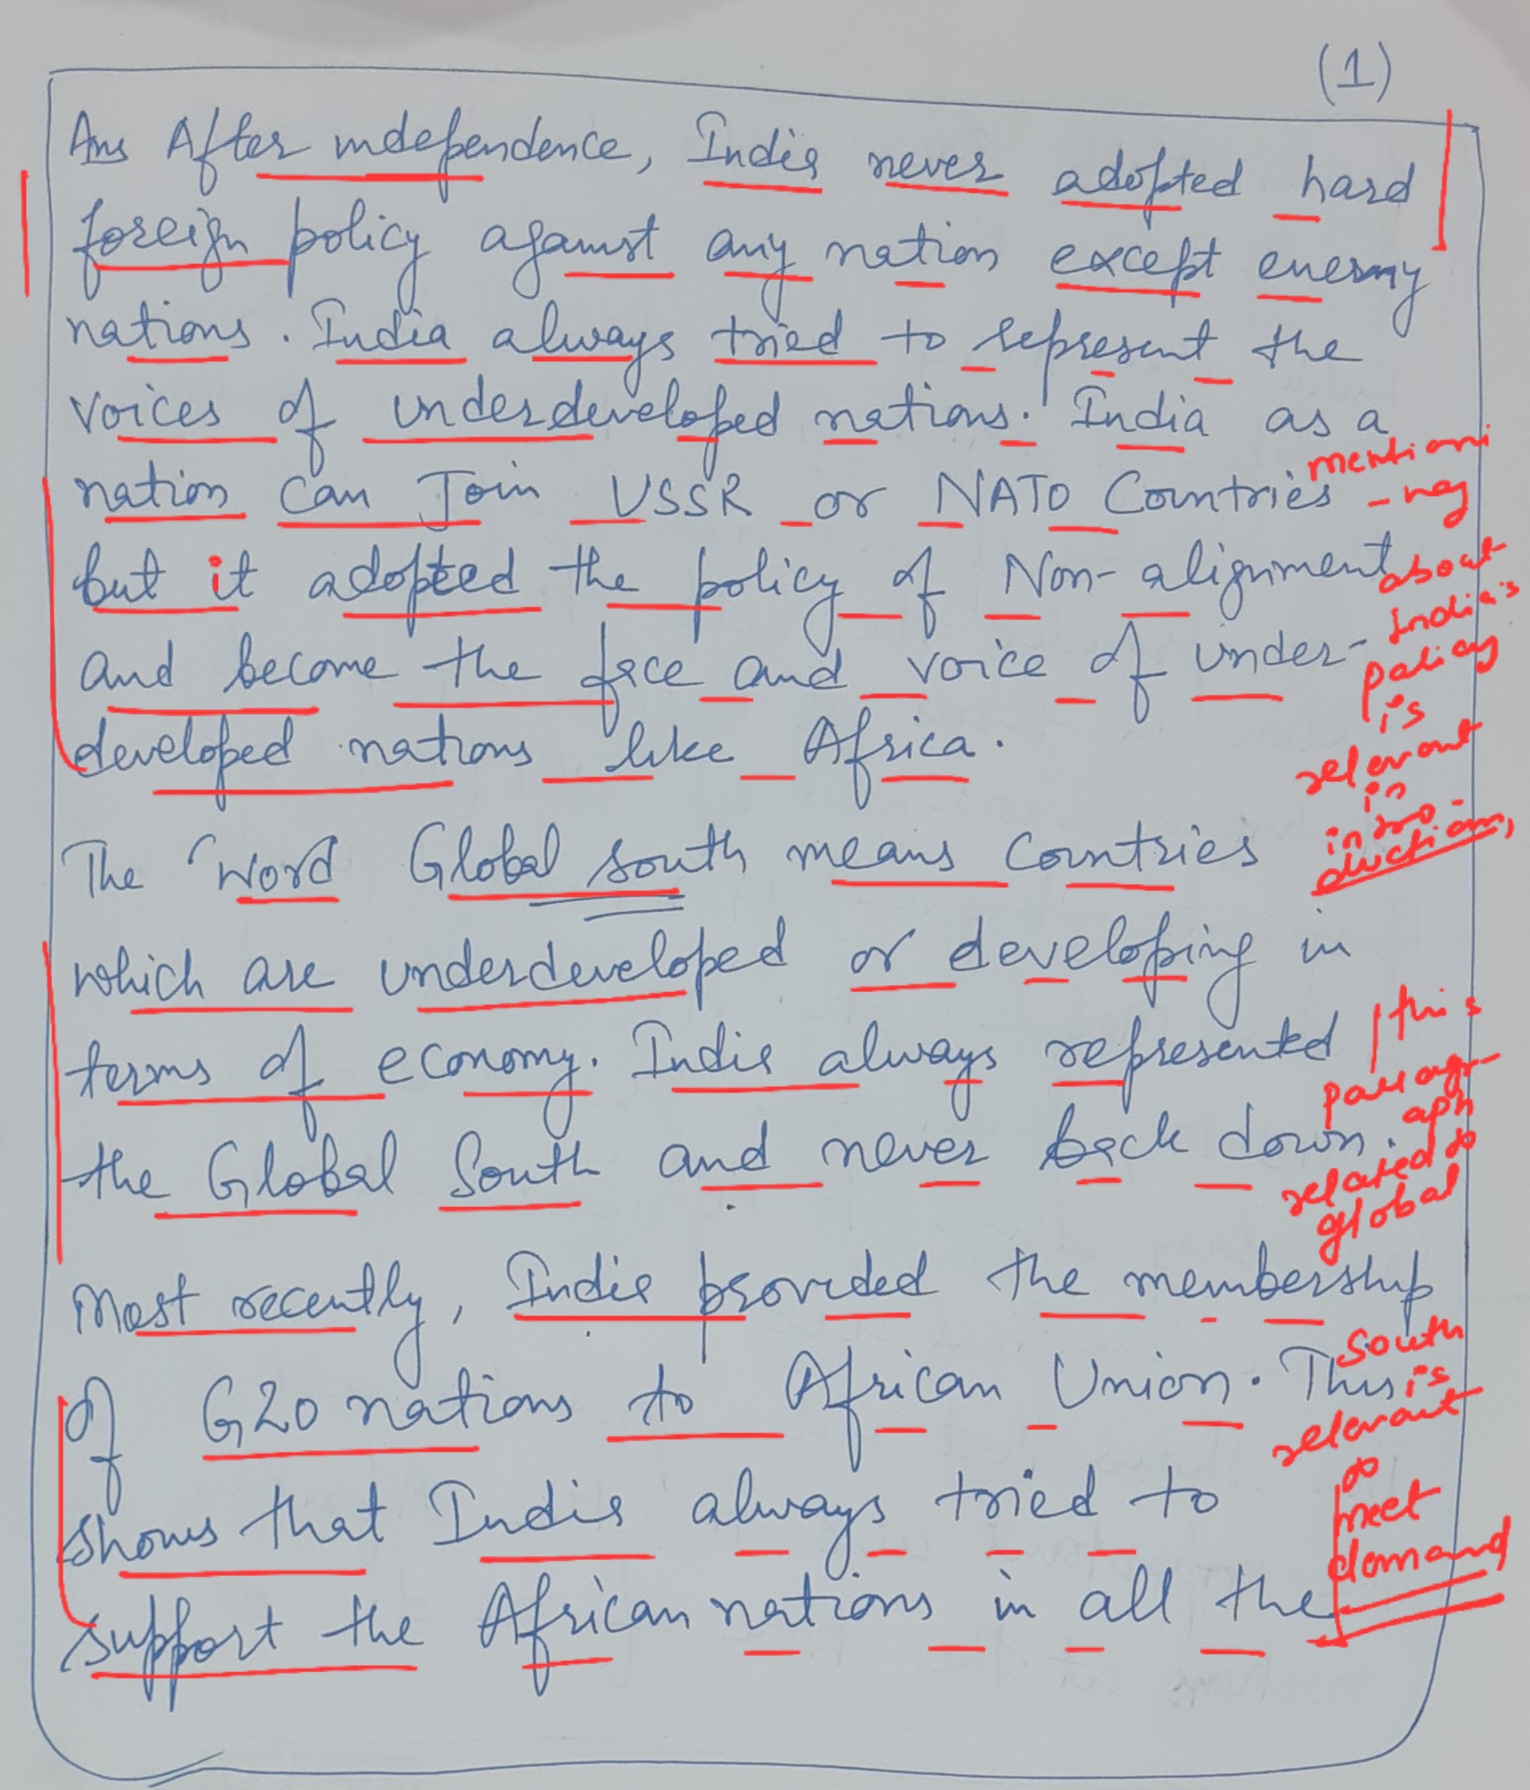 (1)
Ans After independence, India never adopted hard
foreign policy against any nation except enemy
nations. India always tried to represent the
voices of underdeveloped nations. India as a
nation can Join USSR or NATO Countries
but it adopted the policy of Non-alignment
and become the face and voice of under-
developed nations like Africa.
The word Global south means countries
which are underdeveloped or developing in
terms of economy. India always represented
the Global South and never back down.
Most recently, India provided the membership
of G20 nations to African Union. This
shows that India always tried to
support the African nations in all the
mentioni
-ng
about
India's
policy
is
relevant
in
intro-
duction,
this
paragr-
aph
related to
global
south
is
relevant
to
meet
demand